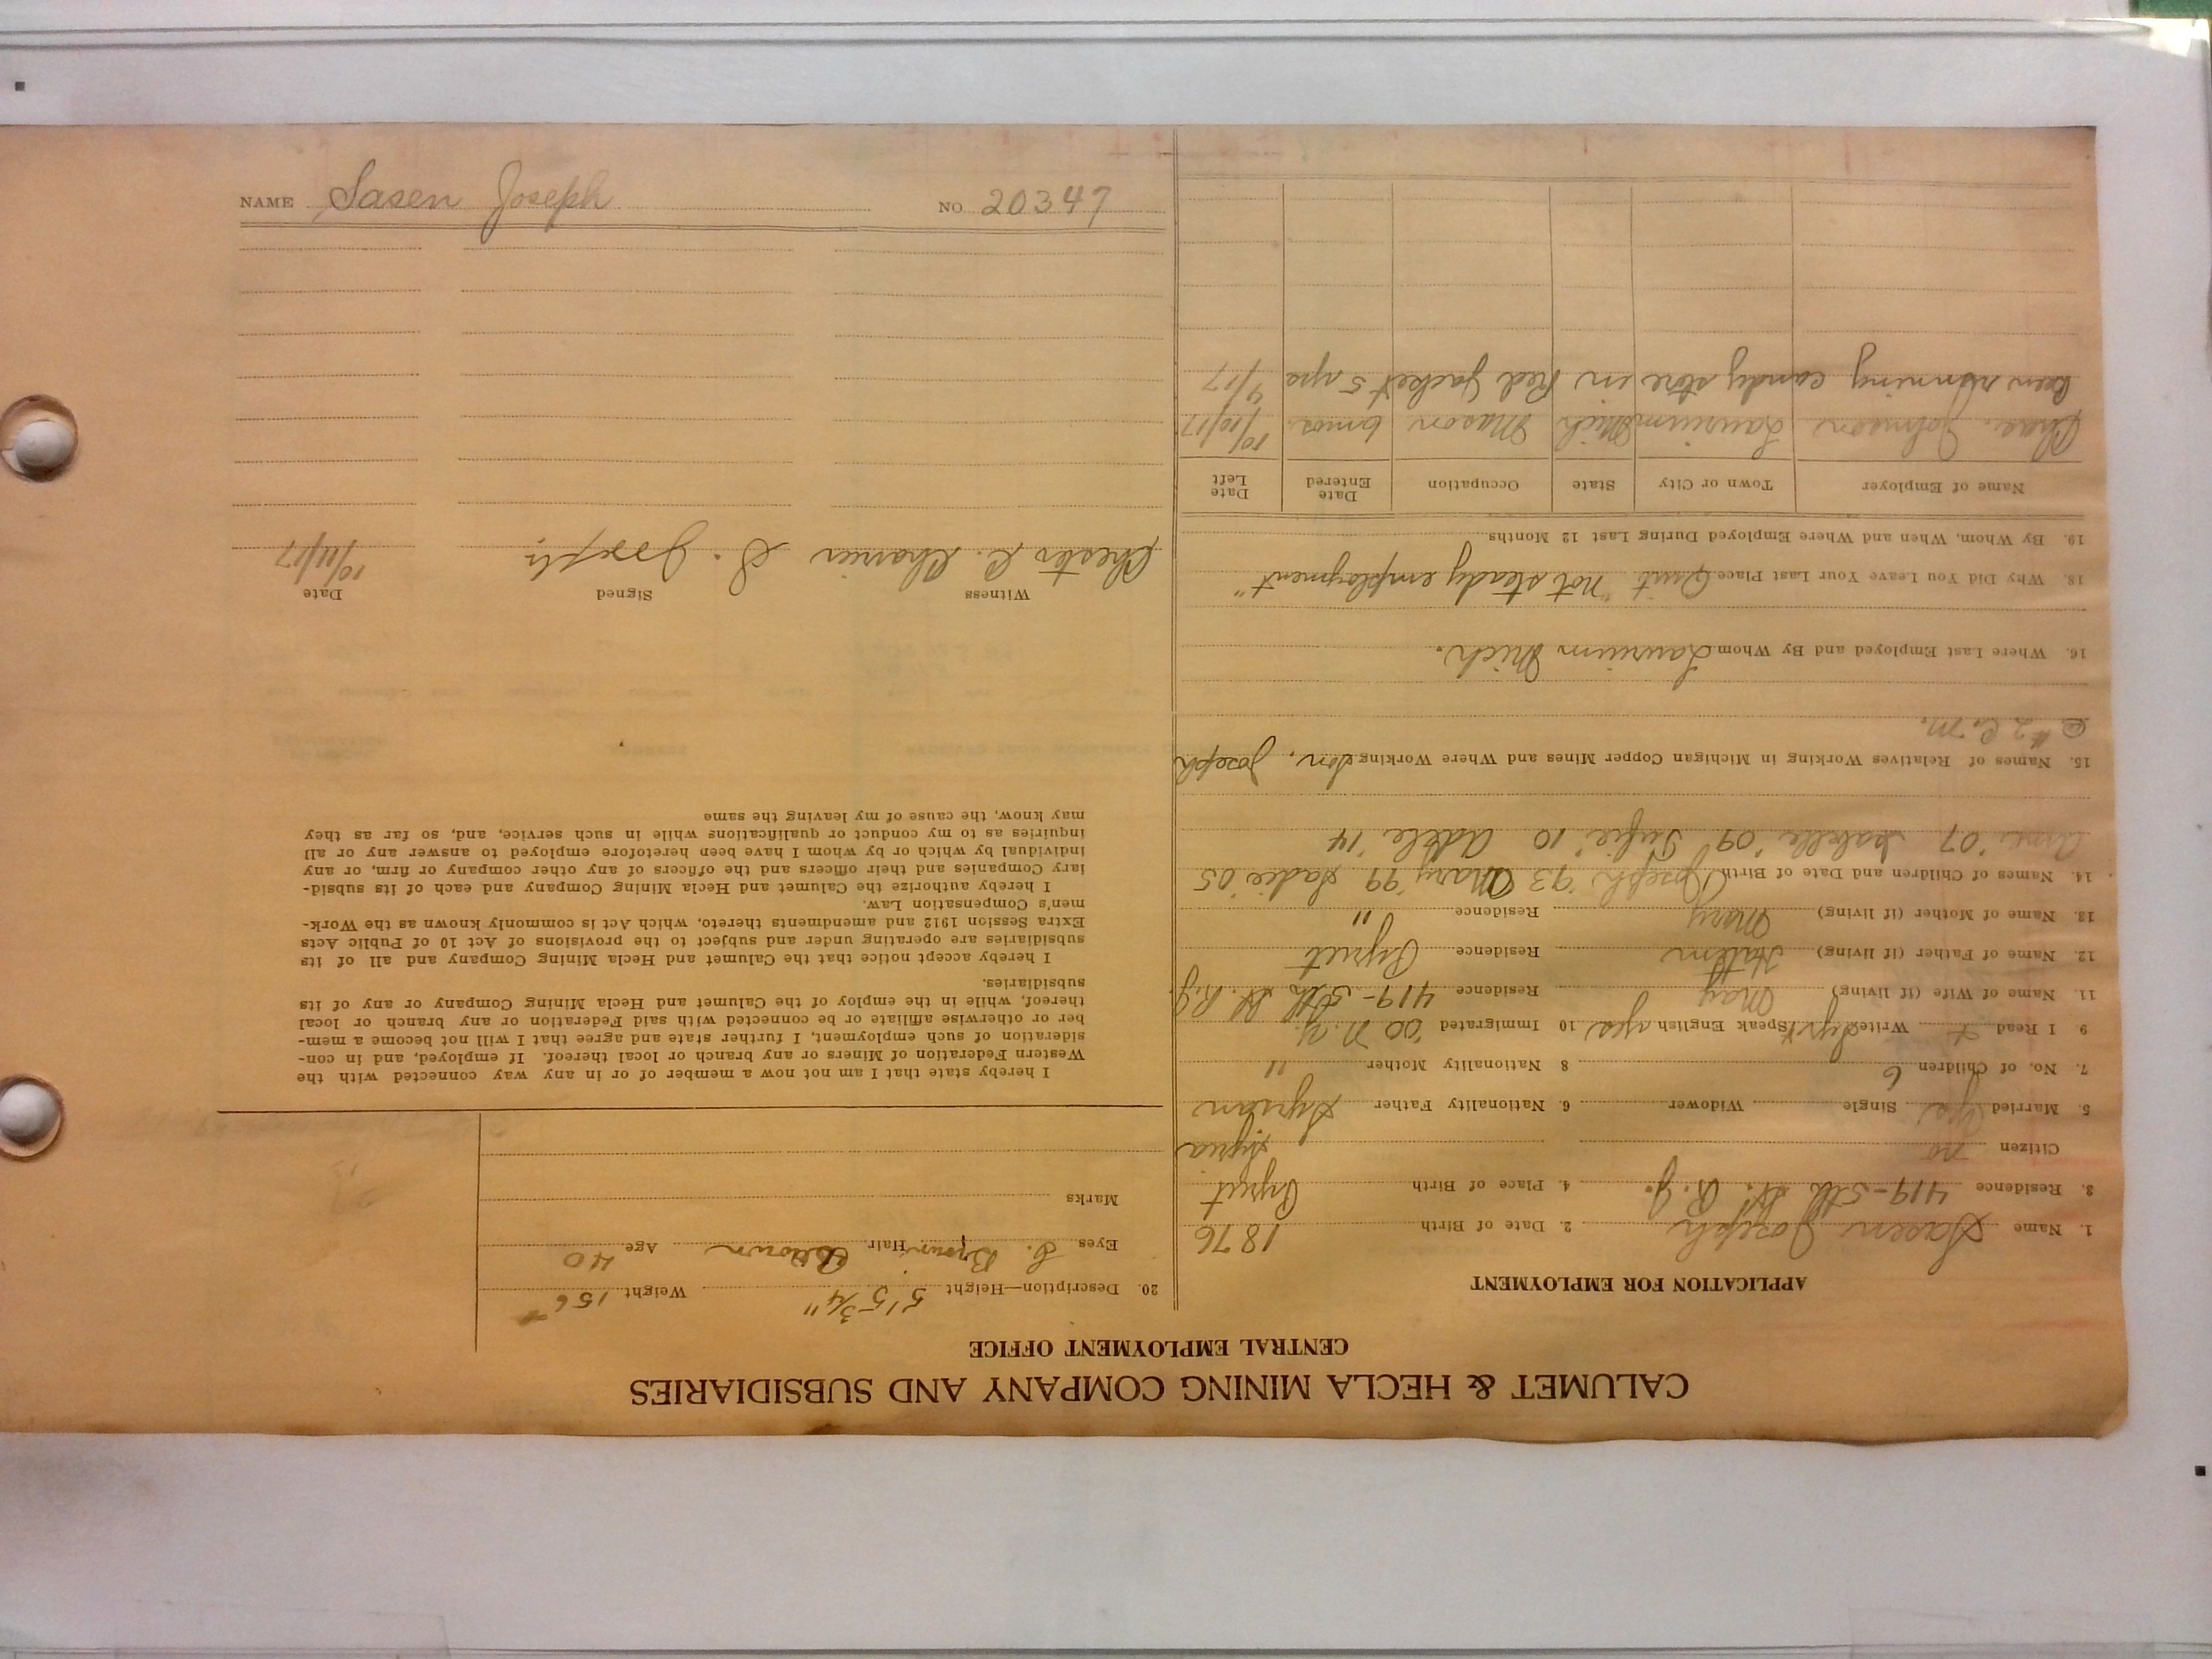 NAME Sasen Joseph NO. 20347
CALUMET & HECLA MINING COMPANY AND SUBSIDIARIES
CENTRAL EMPLOYMENT OFFICE
APPLICATION FOR EMPLOYMENT
1. Name Sasen Joseph 2. Date of Birth 1876
3. Residence 419-5th St. R.J. 4. Place of Birth
Citizen no Syria
5. Married yes Single Widower 6. Nationality Father Syrian
7. No. of Children 6 8 Nationality Mother "
9 I Read Write Speak English yes 10 Immigrated '00 N.Y.
11. Name of Wife (if living) Mary Residence 419-5th St. R.J.
12. Name of Father (if living) Residence
13. Name of Mother (if living) Mary Residence "
14. Names of Children and Date of Birth Joseph '93 Mary '99 Sadie '05
'07 Isabelle '09 '10 Adele '14
15. Names of Relatives Working in Michigan Copper Mines and Where Working Son, Joseph
@ #2
16. Where Last Employed and By Whom Laurium Mich.
18. Why Did You Leave Your Last Place Quit "not steady employment"
19. By Whom, When and Where Employed During Last 12 Months
Name of Employer Town or City State Occupation Date Entered Date Left
Chas. Johnson Laurium Mich Mason 6 mos. 10/10/17
Been running candy store in Red Jacket 5 yrs 4/17
20. Description—Height 5' 5 3/4" Weight 156#
Eyes Brown Hair Brown Age 40
Marks
I hereby state that I am not now a member of or in any way connected with the
Western Federation of Miners or any branch or local thereof. If employed, and in con-
sideration of such employment, I further state and agree that I will not become a mem-
ber or otherwise affiliate or be connected with said Federation or any branch or local
thereof, while in the employ of the Calumet and Hecla Mining Company or any of its
subsidiaries.
I hereby accept notice that the Calumet and Hecla Mining Company and all of its
subsidiaries are operating under and subject to the provisions of Act 10 of Public Acts
Extra Session 1912 and amendments thereto, which Act is commonly known as the Work-
men's Compensation Law.
I hereby authorize the Calumet and Hecla Mining Company and each of its subsid-
iary Companies and their officers and the officers of any other company or firm, or any
individual by which or by whom I have been heretofore employed to answer any or all
inquiries as to my conduct or qualifications while in such service, and, so far as they
may know, the cause of my leaving the same
Witness Signed Date
Chester C. S. Joseph 10/11/17